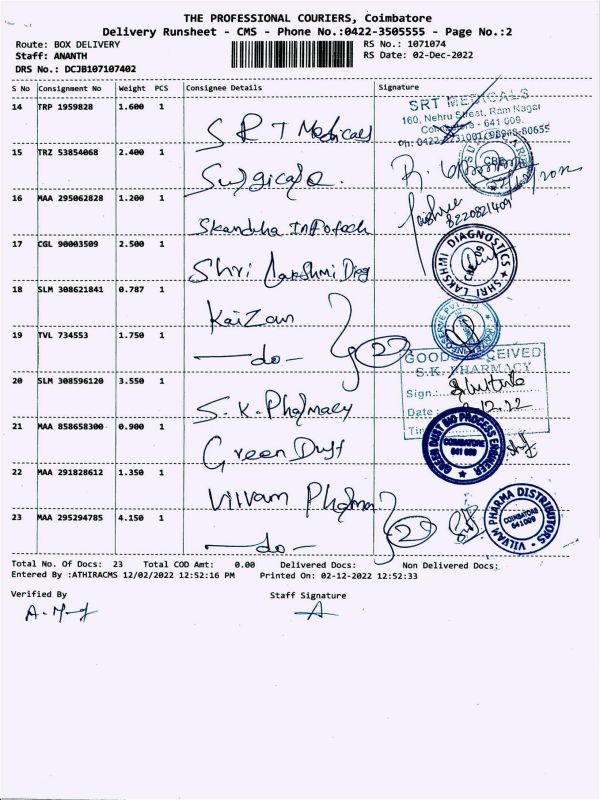 THE PROFESSIONAL COURIERS, Coimbatore
Delivery Runsheet - CMS - Phone No.:0422-3505555 - Page No.:2
Route: BOX DELIVERY RS No.: 1071074
Staff: ANANTH RS Date: 02-Dec-2022
DRS No.: DCJB107107402
S No Consignment No Weight PCS Consignee Details Signature
14 TRP 1959828 1.600 1 SRT Medicals
SRT MEDICALS
160, Nehru Street, Ram Nagar
Coimbatore - 641 009.
15 TRZ 53854068 2.400 1 Surgicals
16 MAA 295062828 1.200 1 Skandha Infotech
8220821409
17 CGL 90003509 2.500 1 Shri Lakshmi Diag
SHRI LAKSHMI DIAGNOSTICS
18 SLM 308621841 0.787 1 KaiZan
19 TVL 734553 1.750 1 -do- 2
GOODS RECEIVED
S.K. PHARMACY
Sign:
Date:
20 SLM 308596120 3.550 1 S.K. Pharmacy
21 MAA 858658300 0.900 1 Green Dust
GREEN DUST BIO PROCESS ENGINEER
COIMBATORE
641 009
22 MAA 291828612 1.350 1 Vilvam Pharma
VILVAM PHARMA DISTRIBUTORS
COIMBATORE
641009
23 MAA 295294785 4.150 1 -do- 2
Total No. Of Docs: 23 Total COD Amt: 0.00 Delivered Docs: Non Delivered Docs:
Entered By :ATHIRACMS 12/02/2022 12:52:16 PM Printed On: 02-12-2022 12:52:33
Verified By Staff Signature